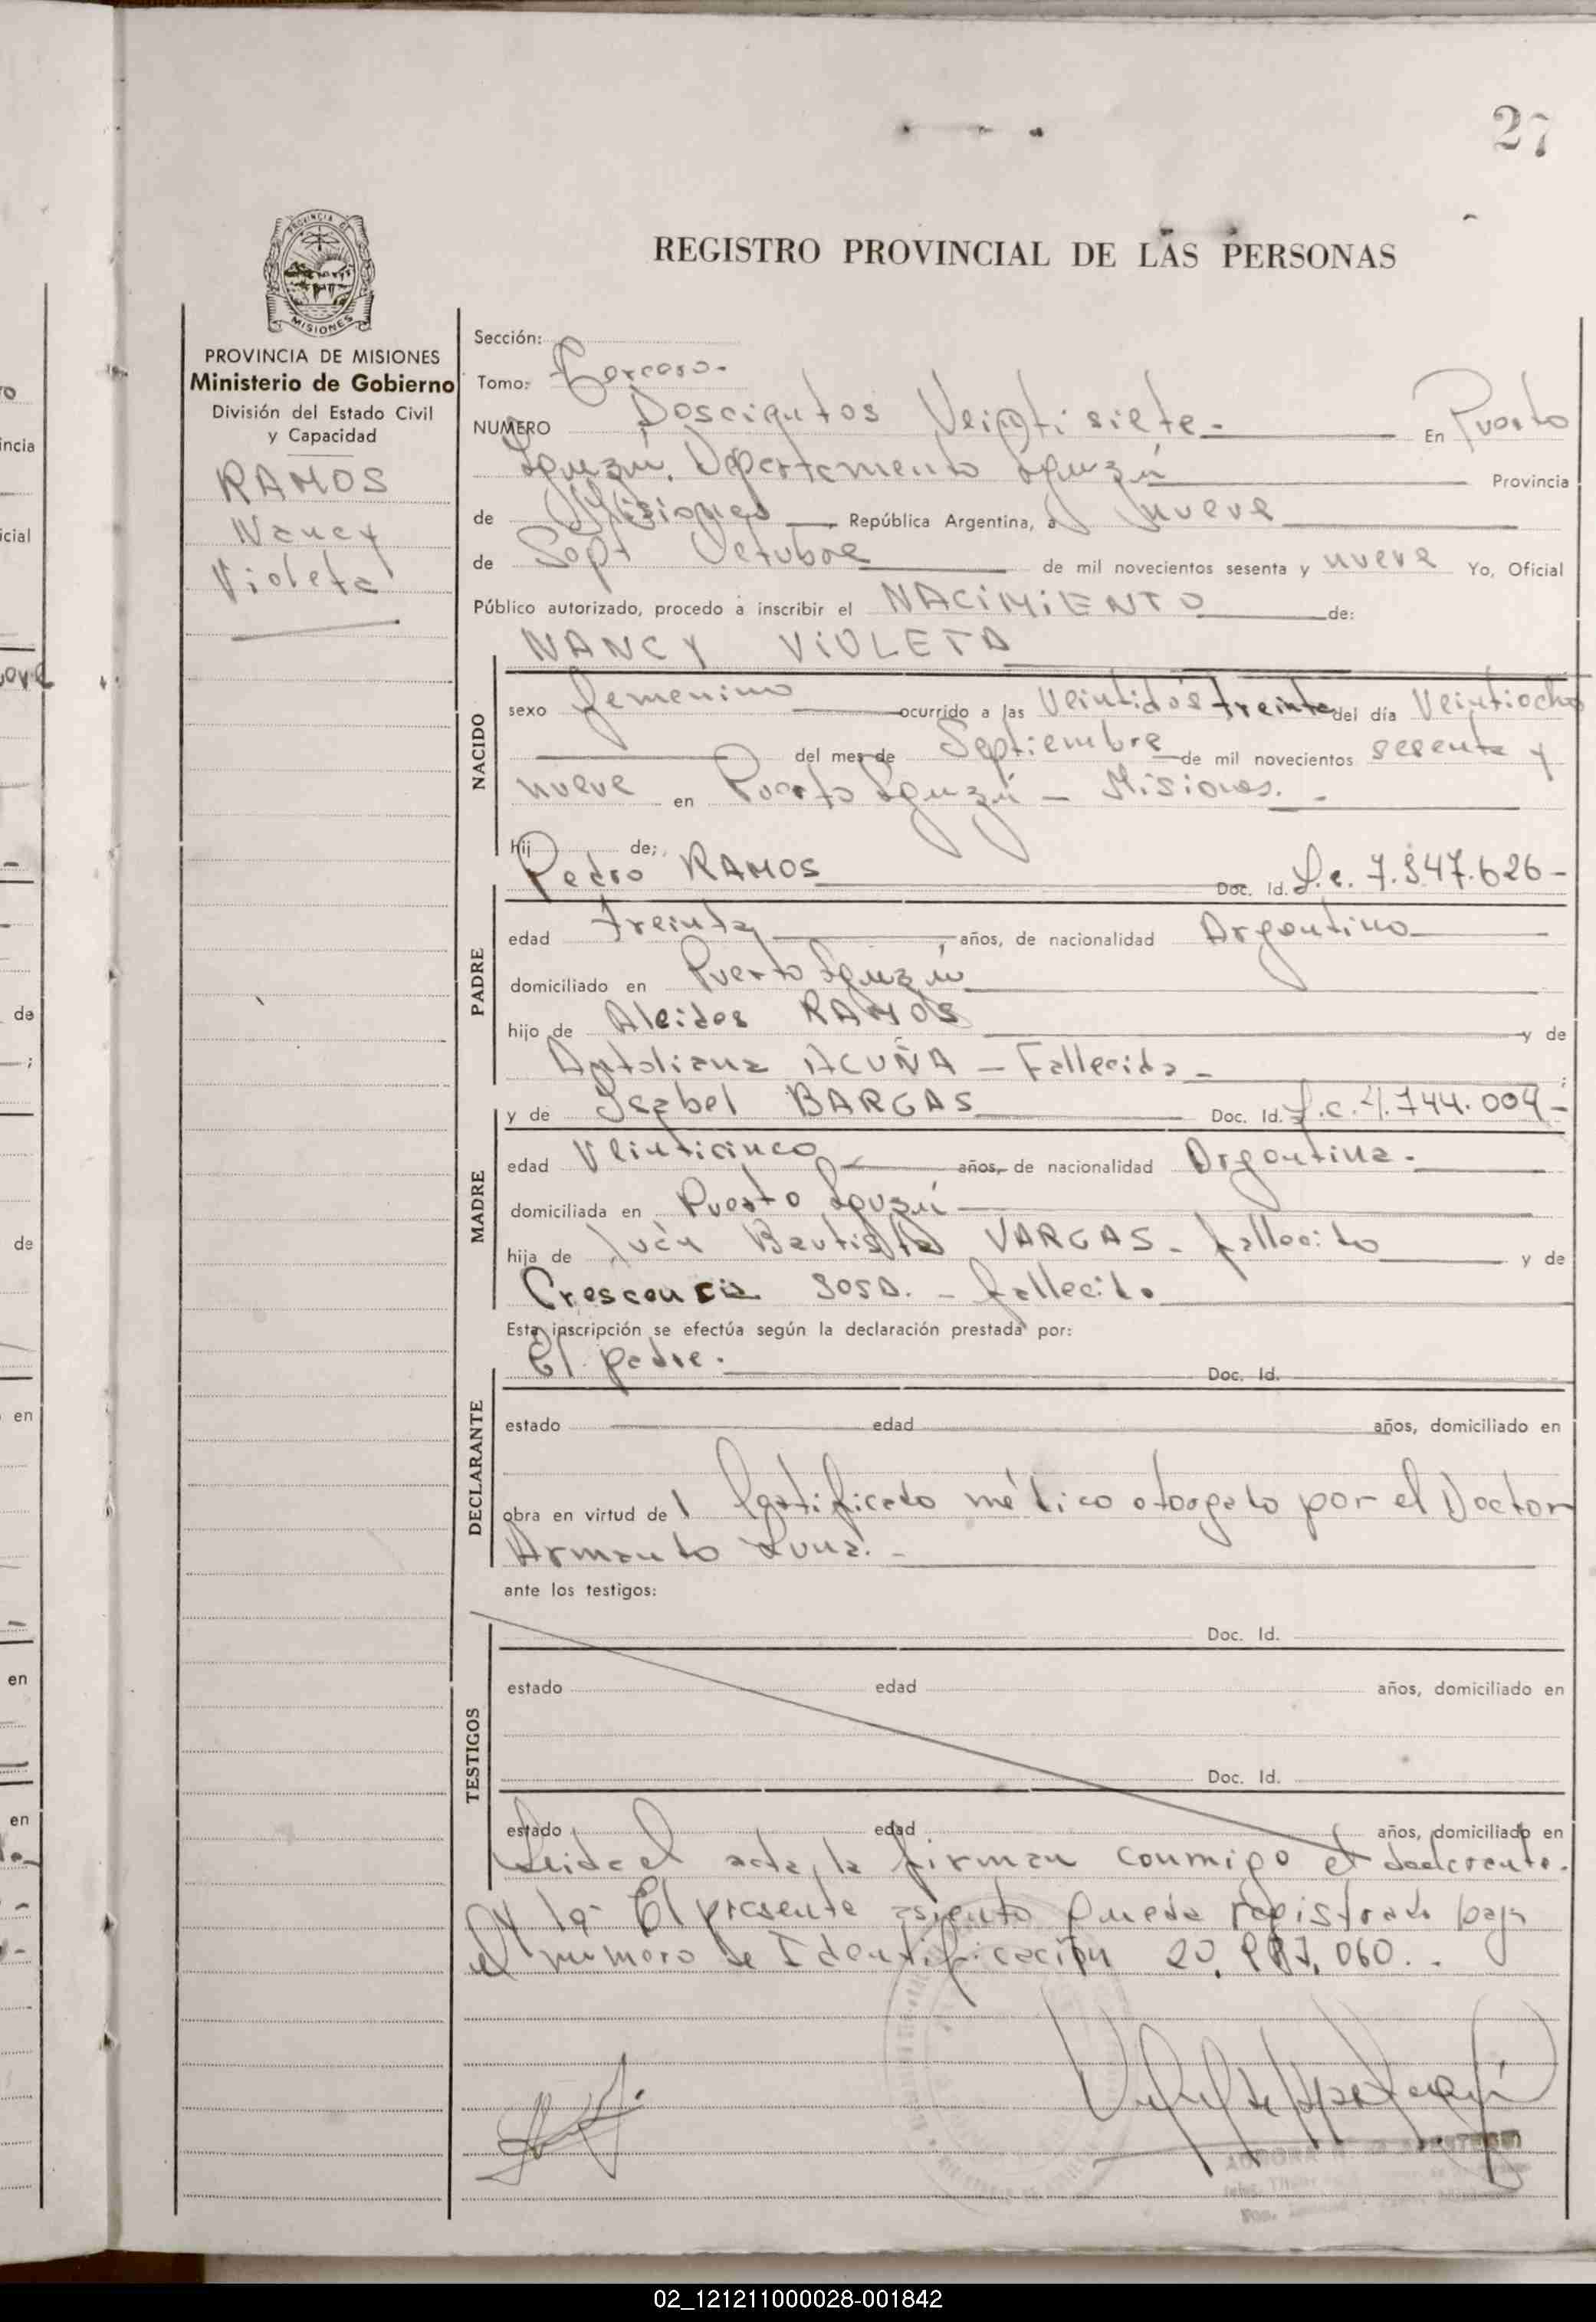 27
PROVINCIA DE
MISIONES
REGISTRO PROVINCIAL DE LAS PERSONAS
PROVINCIA DE MISIONES
Ministerio de Gobierno
División del Estado Civil
y Capacidad
RAMOS
Nancy
Violeta
Sección:
Tomo: Tercero.-
NUMERO Doscientos Veintisiete.- En Puerto
Iguazú, Departamento Iguazú Provincia
de Misiones República Argentina, a nueve
de Sept Octubre de mil novecientos sesenta y nueve Yo, Oficial
Público autorizado, procedo a inscribir el NACIMIENTO de:
NANCY VIOLETA
NACIDO
sexo femenino ocurrido a las Veintidós treinta del día Veintiocho
del mes de Septiembre de mil novecientos sesenta y
nueve en Puerto Iguazú - Misiones. -
hij de;
Pedro RAMOS Doc. Id. L.e. 7.847.626-
PADRE
edad treinta años, de nacionalidad Argentino
domiciliado en Puerto Iguazú
hijo de Aleides RAMOS y de
Antoliana ACUÑA - Fallecida - ;
y de Isabel BARGAS Doc. Id. L.c. 4.744.004-
MADRE
edad Veinticinco años, de nacionalidad Argentina.-
domiciliada en Puerto Iguazú
hija de Juan Bautista VARGAS - fallecido y de
Crescencia SOSA. - fallecido
Esta inscripción se efectúa según la declaración prestada por:
El padre. Doc. Id.
DECLARANTE
estado edad años, domiciliado en
obra en virtud de l Certificado médico otorgado por el Doctor
Armando Luna. -
ante los testigos:
Doc. Id.
TESTIGOS
estado edad años, domiciliado en
Doc. Id.
estado edad años, domiciliado en
Leida el acta, la firman conmigo el declarante.
El presente asiento queda registrado bajo
el número de Identificación 20.987.060. -
02_121211000028-001842